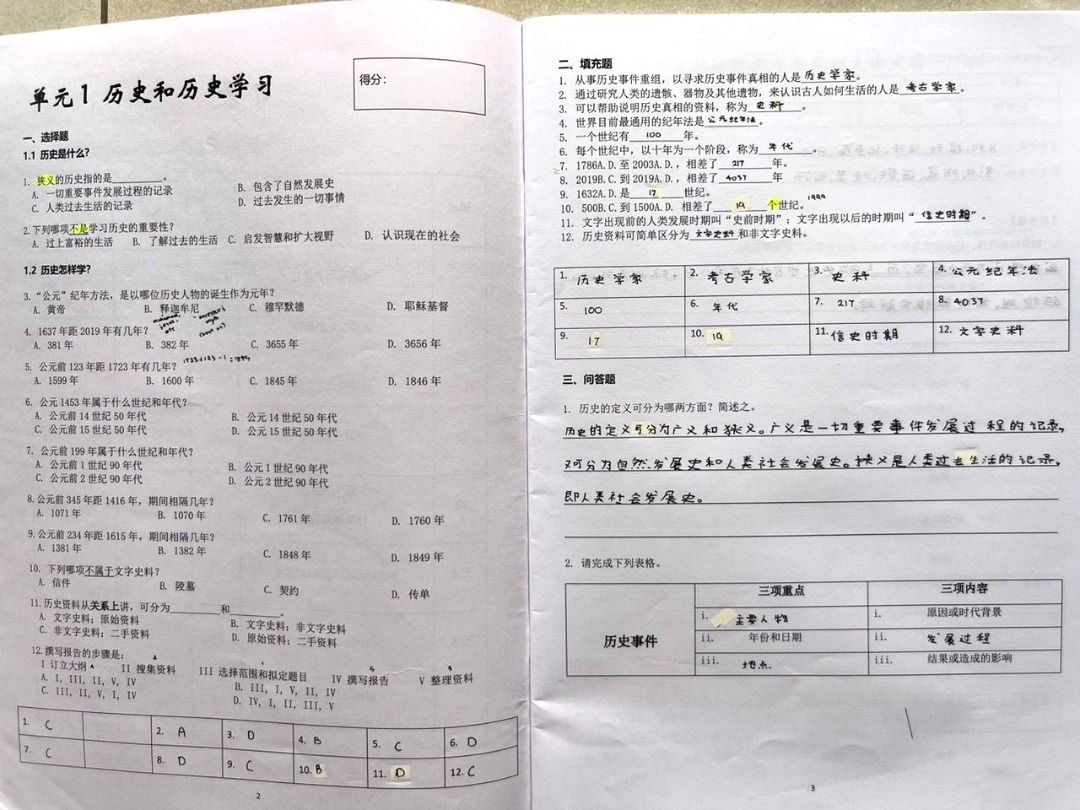 单元1 历史和历史学习
得分：
一、选择题
1.1 历史是什么？
1. 狭义的历史指的是__________。
A. 一切重要事件发展过程的记录
B. 包含了自然发展史
C. 人类过去生活的记录
D. 过去发生的一切事情
2.下列哪项不是学习历史的重要性？
A. 过上富裕的生活 B. 了解过去的生活 C. 启发智慧和扩大视野 D. 认识现在的社会
1.2 历史怎样学？
3.“公元”纪年方法，是以哪位历史人物的诞生作为元年？
A. 黄帝 B. 释迦牟尼 C. 穆罕默德 D. 耶稣基督
4. 1637年距2019年有几年？
A. 381年 B. 382年 C. 3655年 D. 3656年
5. 公元前123年距1723年有几年？
1723+123-1=1845
A. 1599年 B. 1600年 C. 1845年 D. 1846年
6. 公元1453年属于什么世纪和年代？
A. 公元前14世纪50年代 B. 公元14世纪50年代
C. 公元前15世纪50年代 D. 公元15世纪50年代
7. 公元前199年属于什么世纪和年代？
A. 公元前1世纪90年代 B. 公元1世纪90年代
C. 公元前2世纪90年代 D. 公元2世纪90年代
8.公元前345年距1416年，期间相隔几年？
A. 1071年 B. 1070年 C. 1761年 D. 1760年
9.公元前234年距1615年，期间相隔几年？
A. 1381年 B. 1382年 C. 1848年 D. 1849年
10. 下列哪项不属于文字史料？
A. 信件 B. 陵墓 C. 契约 D. 传单
11.历史资料从关系上讲，可分为_________和_________。
A. 文字史料；原始资料 B. 文字史料；非文字史料
C. 非文字史料；二手资料 D. 原始资料；二手资料
12.撰写报告的步骤是：
I 订立大纲 II 搜集资料 III 选择范围和拟定题目 IV 撰写报告 V 整理资料
A. I, III, II, V, IV B. III, I, V, II, IV
C. III, II, V, I, IV D. IV, I, II, III, V
1. C 2. A 3. D 4. B 5. C 6. D
7. C 8. D 9. C 10. B 11. D 12. C
2
二、填充题
1. 从事历史事件重组，以寻求历史事件真相的人是历史学家。
2. 通过研究人类的遗骸、器物及其他遗物，来认识古人如何生活的人是考古学家。
3. 可以帮助说明历史真相的资料，称为史料。
4. 世界目前最通用的纪年法是公元纪年法。
5. 一个世纪有100年。
6. 每个世纪中，以十年为一个阶段，称为年代。
7. 1786A.D.至2003A.D.，相差了217年。
8. 2019B.C.到2019A.D.，相差了4037年。
9. 1632A.D.是17世纪。
10. 500B.C.到1500A.D. 相差了19个世纪。 1999
11. 文字出现前的人类发展时期叫“史前时期”；文字出现以后的时期叫“信史时期”。
12. 历史资料可简单区分为文字史料和非文字史料。
1. 历史学家 2. 考古学家 3. 史料 4. 公元纪年法
5. 100 6. 年代 7. 217 8. 4037
9. 17 10. 19 11. 信史时期 12. 文字史料
三、问答题
1. 历史的定义可分为哪两方面？简述之。
历史的定义可分为广义和狭义。广义是一切重要事件发展过程的记录，
又可分为自然发展史和人类社会发展史。狭义是人类过去生活的记录，
即人类社会发展史。
2. 请完成下列表格。
三项重点 三项内容
历史事件
i. 主要人物 i. 原因或时代背景
ii. 年份和日期 ii. 发展过程
iii. 地点 iii. 结果或造成的影响
3